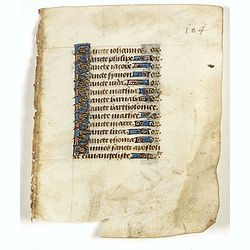 104
Sancte iohannes. or.
Sancte philippe. or.
Sancte iacobe. or.
Sancte symon. or.
Sancte iuda. or.
Sancte mathia. or.
Sancte barnaba. or.
Sancte bartholomee.
Sancte mathee. or.
Sancte marce. or.
Sancte luca. or.
Sancte thoma. or.
Omnes sancti apostoli
et euangeliste